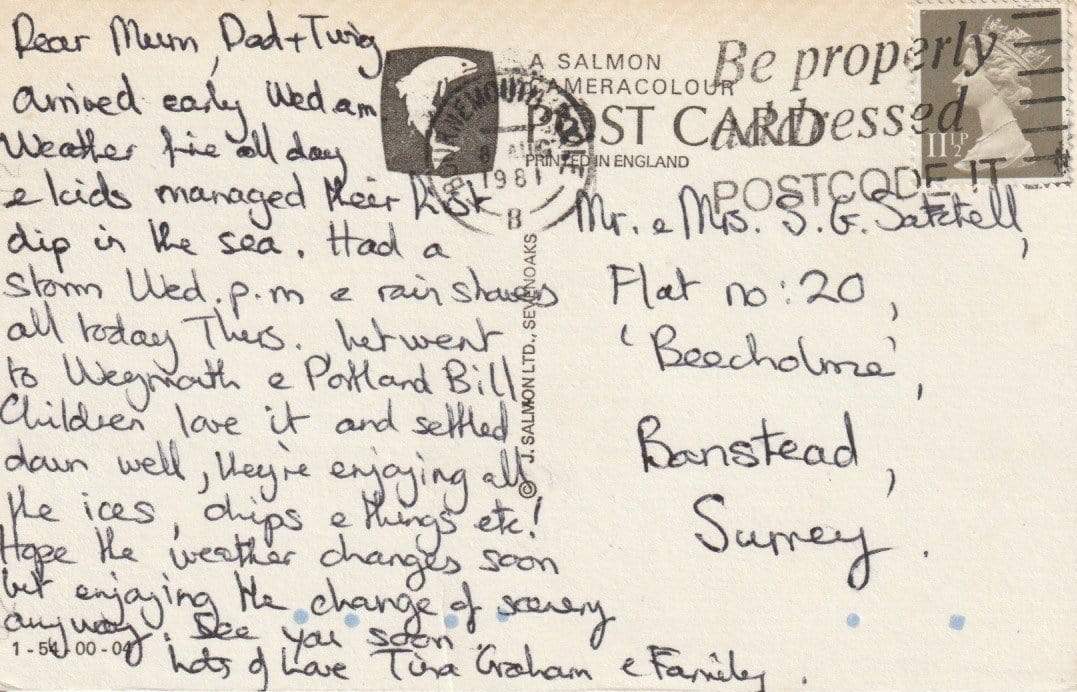 Dear Mum, Dad + Twig
arrived early Wed am.
Weather fine all day
& kids managed their first
dip in the sea. Had a
storm Wed. p.m & rain showers
all today Thurs. but went
to Weymouth & Portland Bill
Children love it and settled
down well, they're enjoying all
the ices, chips & things etc!
Hope the weather changes soon
but enjoying the change of scenery
anyway. See you soon
Lots of Love Tina Graham & Family.
1-54-00-04
A SALMON
CAMERACOLOUR
POST CARD
PRINTED IN ENGLAND
© J. SALMON LTD., SEVENOAKS
AUG
1981
B
Be properly
addressed
POSTCODE IT
11½P
Mr. & Mrs. S. G. Satchell,
Flat no: 20,
'Beecholme',
Banstead,
Surrey.